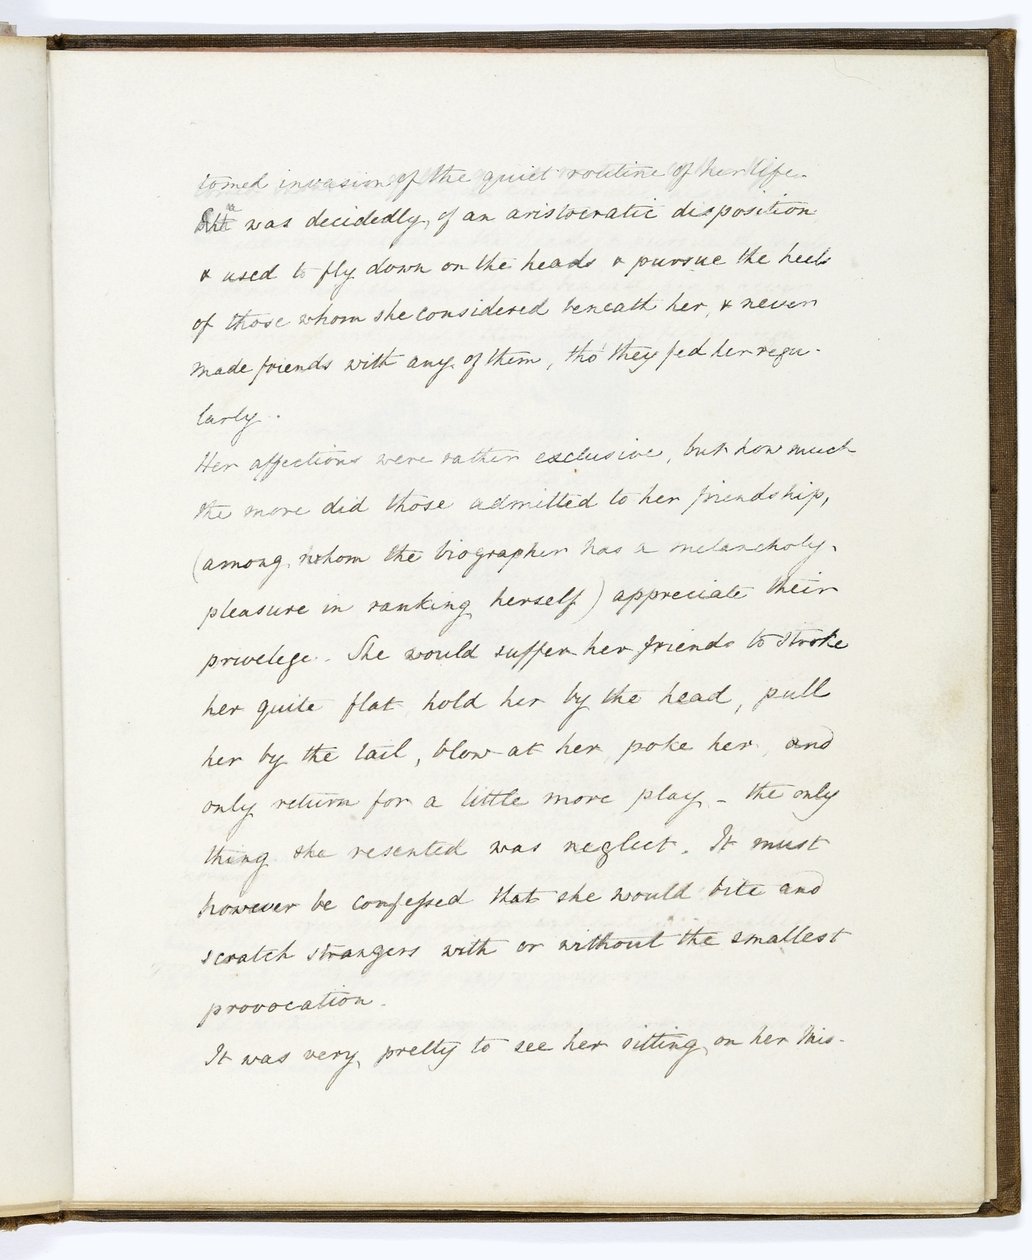 tomed invasion of the quiet routine of her life.
She was decidedly of an aristocratic disposition
& used to fly down on the heads & pursue the heels
of those whom she considered beneath her, & never
made friends with any of them, tho' they fed her regu-
larly.
Her affections were rather exclusive, but how much
the more did those admitted to her friendship,
(among whom the biographer has a melancholy
pleasure in ranking herself) appreciate their
privelege. She would suffer her friends to stroke
her quite flat hold her by the head, pull
her by the tail, blow at her poke her, and
only return for a little more play - the only
thing she resented was neglect. It must
however be confessed that she would bite and
scratch strangers with or without the smallest
provocation.
It was very pretty to see her sitting on her Mis-